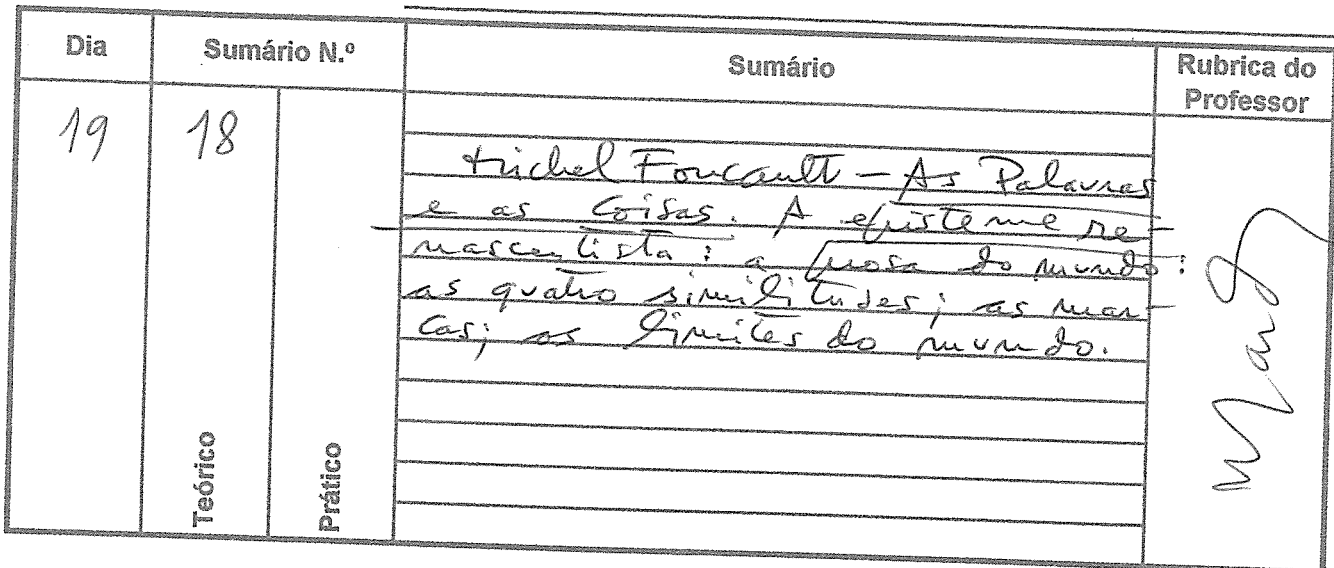 Dia Sumário N.º Sumário Rubrica do Professor
19 18
Michel Foucault - As Palavras
e as Coisas. A episteme re-
nascentista: a prosa do mundo:
as quatro similitudes; as mar-
cas; os limites do mundo.
Teórico Prático